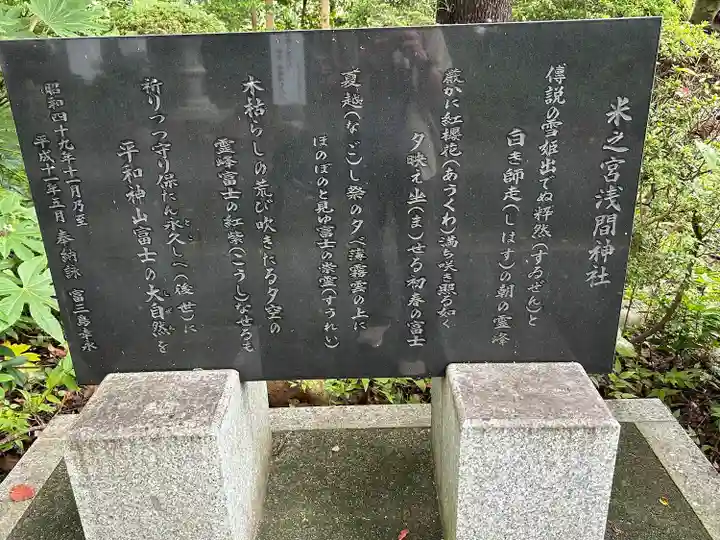 米之宮浅間神社
傳説の雪姫出てぬ粹然(すゐぜん)と
白き師走(しはす)の朝の霊峰
嚴かに紅櫻花(あうくわ)満ち咲き耶る如く
夕映え坐(ま)せる初春の富士
夏越(なご)し祭の夕べ薄霧雲の上に
ほのぼのと見ゆ富士の崇霊(すうれい)
木枯らしの荒び吹きたる夕空の
霊峰富士の紅紫(こうし)なせるも
祈りつつ守り保たん永久しへ(後世)に
平和神山富士の大自然を
昭和四十九年十一月乃至
平成十一年五月 奉納詠 富三島幸永